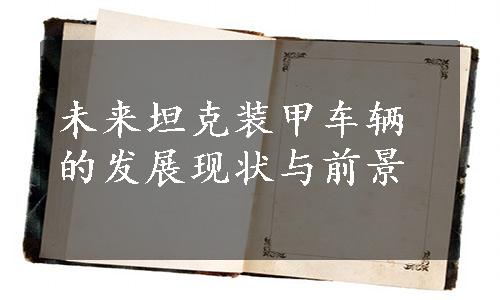 未来坦克装甲车辆
的发展现状与前景